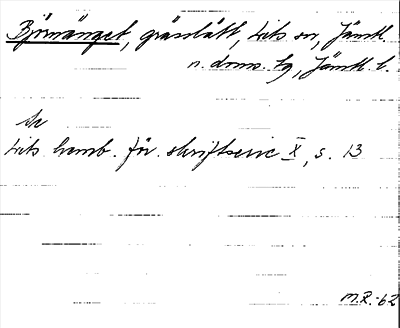 Björnänget, grässlått, Lits sn, Jämtl.
n. doms. tg, Jämtl. l.
Se
Lits hemb. för. skriftserie X, s. 13
M.R.-62